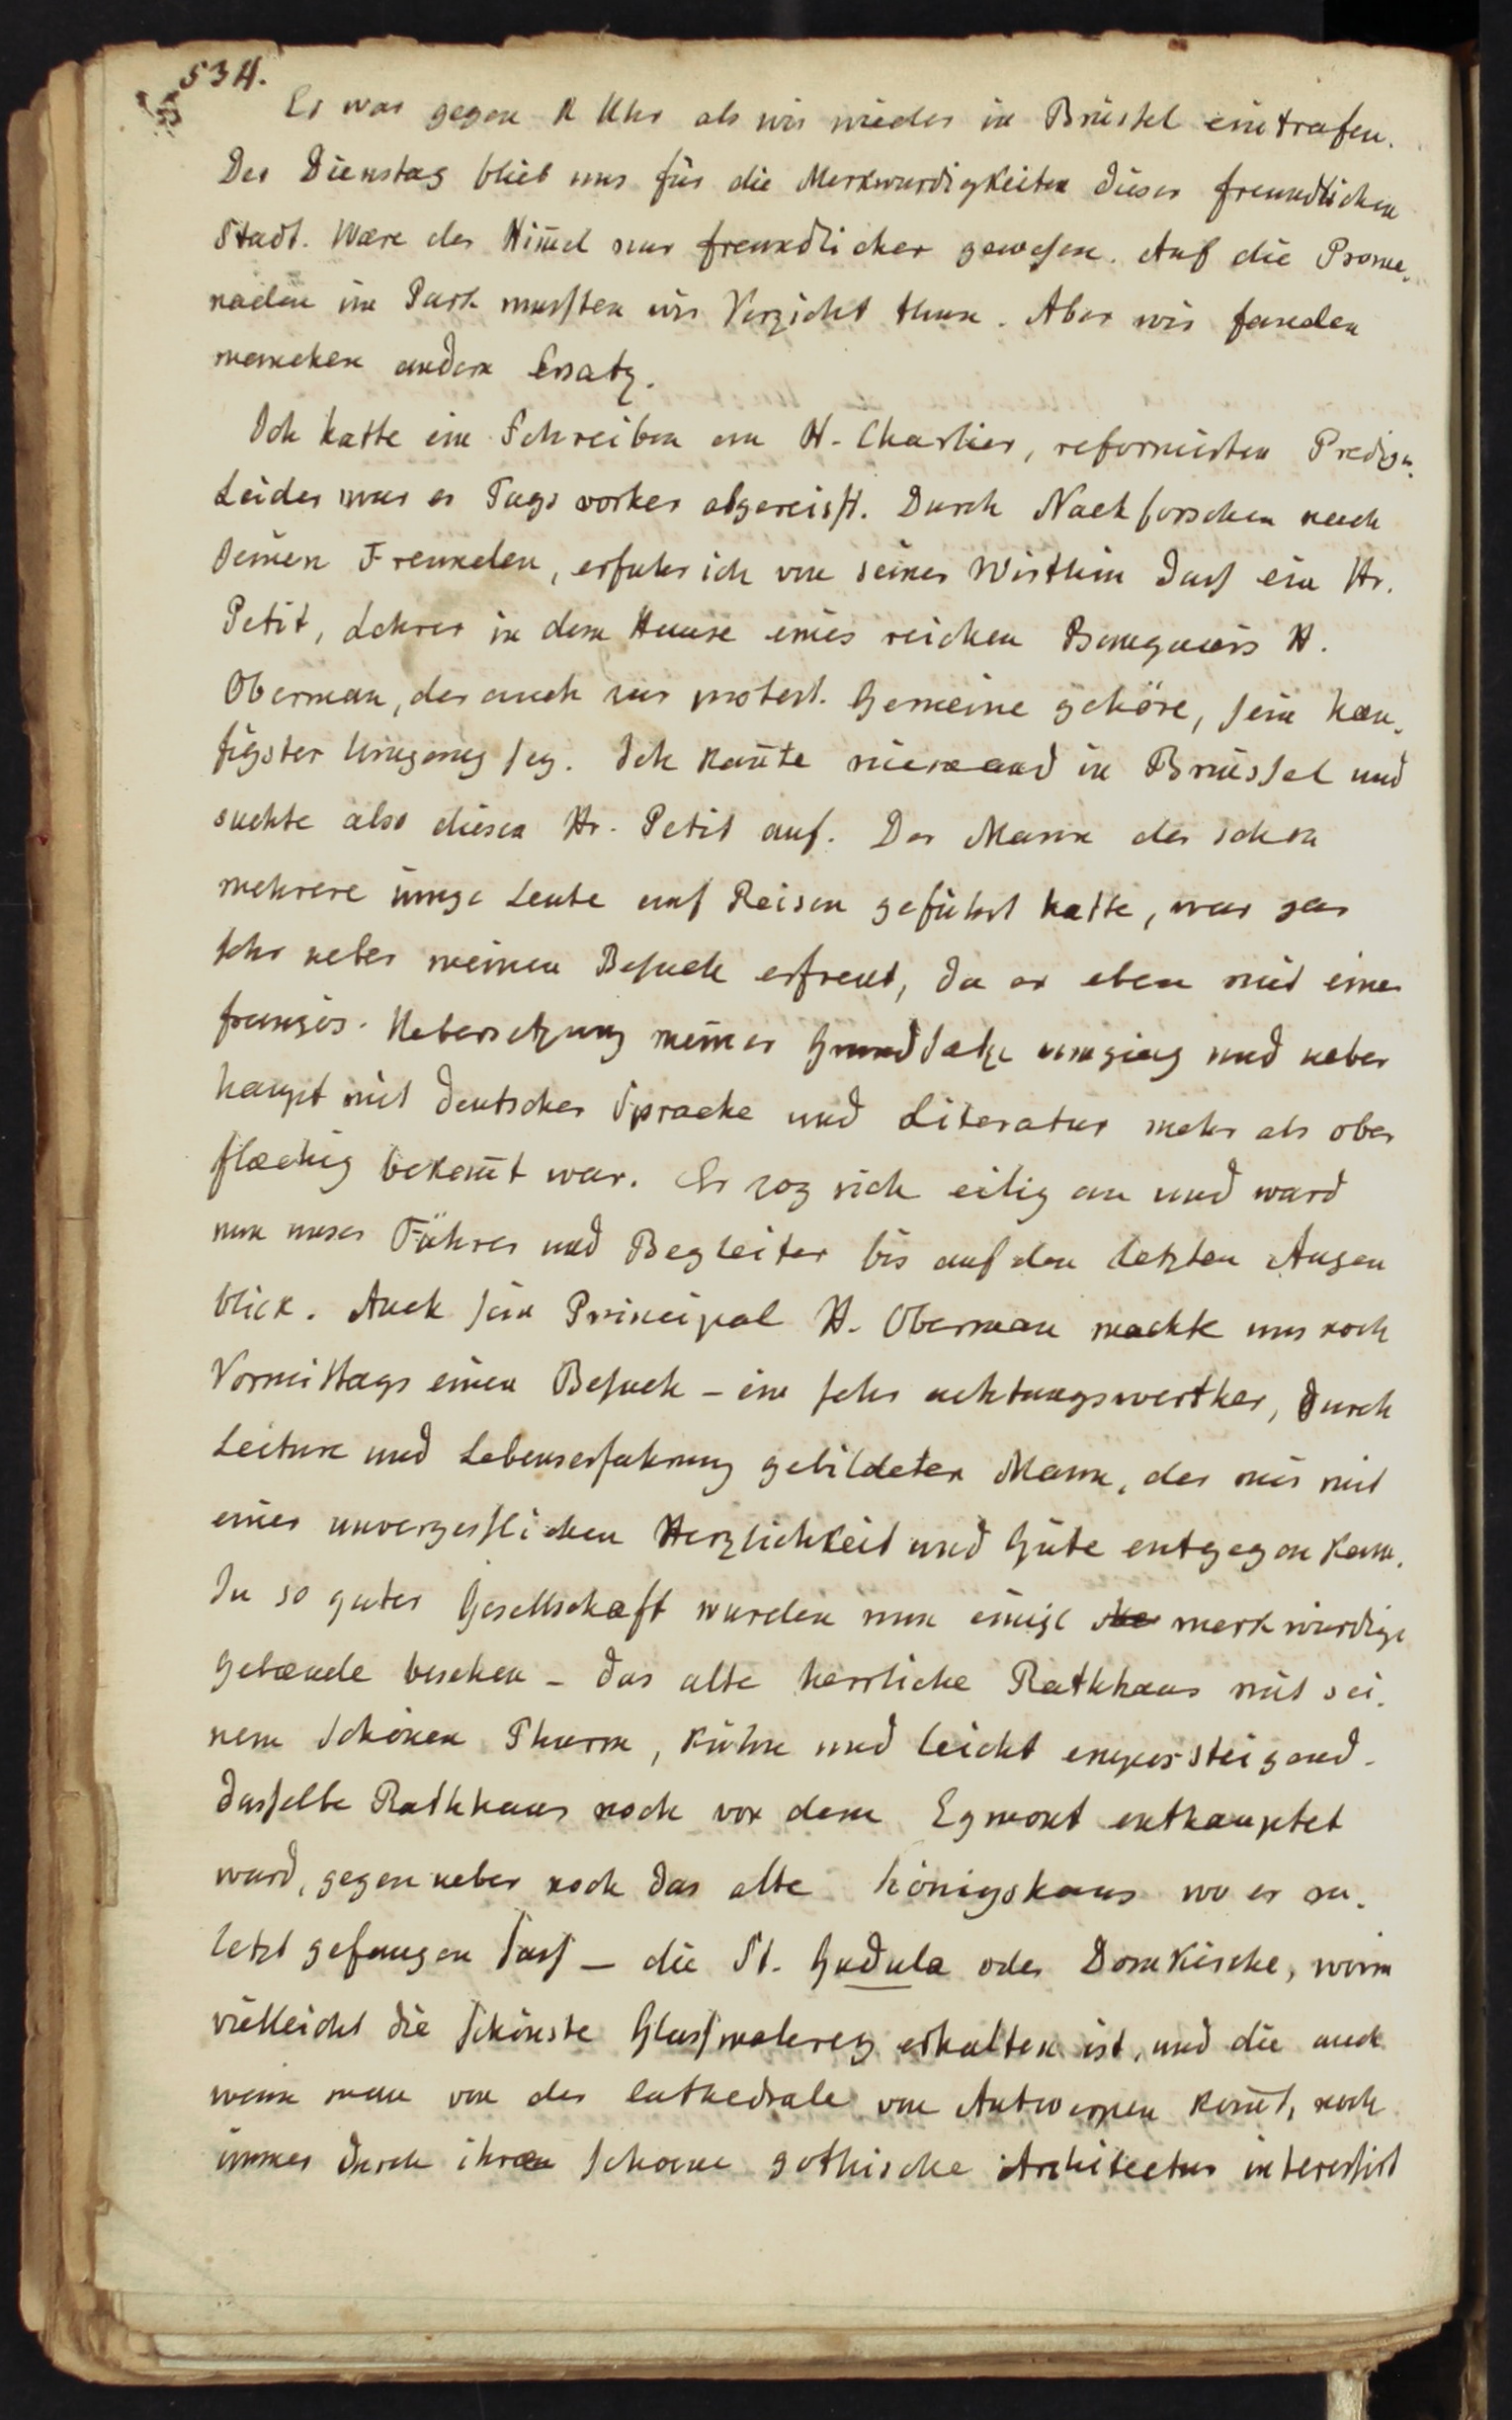 534.
Es war gegen Uhr als wir wieder in Brüssel eintrafen.
Der Dienstag blieb uns für die Merkwürdigkeiten dieser freundlichen
Stadt. Wære der Him̄el nur freundlicher gewesen. Auf die Prome-
naden im Park mussten wir Verzicht thun. Aber wir fanden
manchen andern Ersatz.
Ich hatte ein Schreiben an H. Charlier, reformirten Prediger.
Leider war er Tags vorher abgereisst. Durch Nachforschen nach
seinen Freunden, erfuhr ich von seiner Wirthin dass ein Hr.
Petit, Lehrer in dem Hause eines reichen Banquiers H.
Oberman, der auch zur protest. Gemeine gehöre, sein hæu-
figster Umgang sey. Ich kan̄te niemand in Brüssel und
suchte also diesen Hr. Petit auf. Der Mann der schon
mehrere iunge Leute auf Reisen geführt hatte, war gar
sehr ueber meinen Besuch erfreut, da er eben mit einer
französ. Uebersetzung meiner Grundsätze umging und ueber
haupt mit deutscher Sprache und Literatur mehr als ober
flæchig bekan̄t war. Er zog sich eilig an und ward
nun unser Führer und Begleiter bis auf den letzten Augen
blick. Auch sein Principal H. Oberman machte uns noch
Vormittags einen Besuch – ein sehr achtungswerther, durch
Lecture und Lebenserfahrung gebildeter Mann, der mir mit
einer unvergesslichen Herzlichkeit und Güte entgegen kam.
In so guter Gesellschaft wurden nun einige merkwürdige
Gebæude besehen – das alte herrliche Rathhaus mit sei-
nem schönen Thurm, kühn und leicht emporsteigend –
dasselbe Rathhaus noch vor dem Egmont enthauptet
ward, gegenueber noch das alte Königshaus wo er zu-
letzt gefangen sass – die St. Gudula oder Domkirche, worin
vielleicht die schönste Glassmalerey erhalten ist, und die auch
wenn man von der Cathedrale von Antwerpen kom̄t, noch
immer durch ihre schoene gothische Architectur interessirt